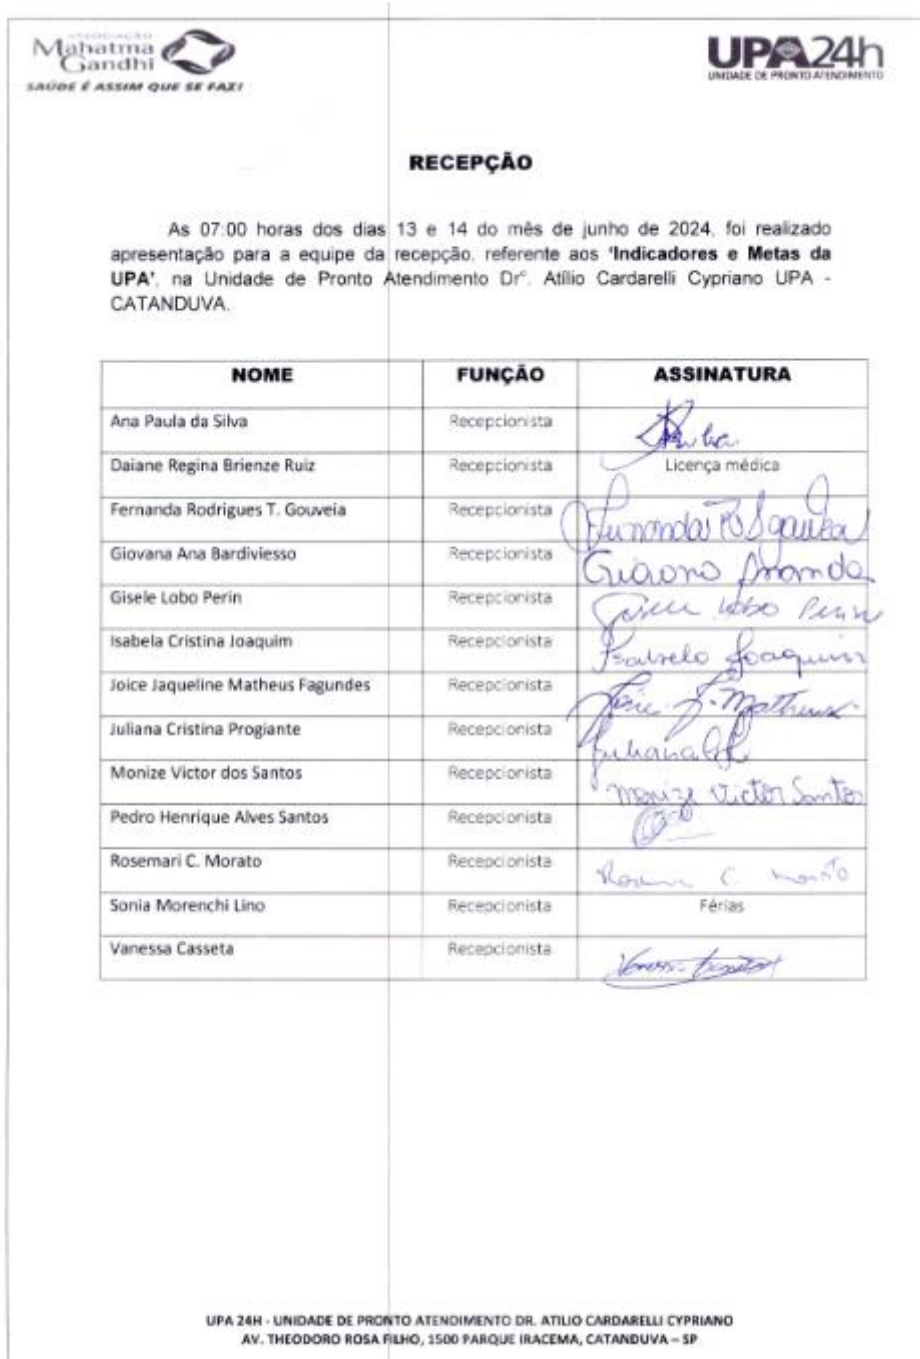 ASSOCIAÇÃO
Mahatma
Gandhi
SAÚDE É ASSIM QUE SE FAZ!
UPA24h
UNIDADE DE PRONTO ATENDIMENTO
RECEPÇÃO
As 07:00 horas dos dias 13 e 14 do mês de junho de 2024, foi realizado
apresentação para a equipe da recepção, referente aos 'Indicadores e Metas da
UPA', na Unidade de Pronto Atendimento Drº. Atílio Cardarelli Cypriano UPA -
CATANDUVA.
NOME FUNÇÃO ASSINATURA
Ana Paula da Silva Recepcionista
Daiane Regina Brienze Ruiz Recepcionista Licença médica
Fernanda Rodrigues T. Gouveia Recepcionista Fernanda R
Giovana Ana Bardiviesso Recepcionista
Gisele Lobo Perin Recepcionista Gisele Lobo Perin
Isabela Cristina Joaquim Recepcionista Isabela Joaquim
Joice Jaqueline Matheus Fagundes Recepcionista Joice J. Matheus
Juliana Cristina Progiante Recepcionista Juliana
Monize Victor dos Santos Recepcionista Monize Victor Santos
Pedro Henrique Alves Santos Recepcionista
Rosemari C. Morato Recepcionista C. Morato
Sonia Morenchi Lino Recepcionista Férias
Vanessa Casseta Recepcionista
UPA 24H - UNIDADE DE PRONTO ATENDIMENTO DR. ATILIO CARDARELLI CYPRIANO
AV. THEODORO ROSA FILHO, 1500 PARQUE IRACEMA, CATANDUVA – SP